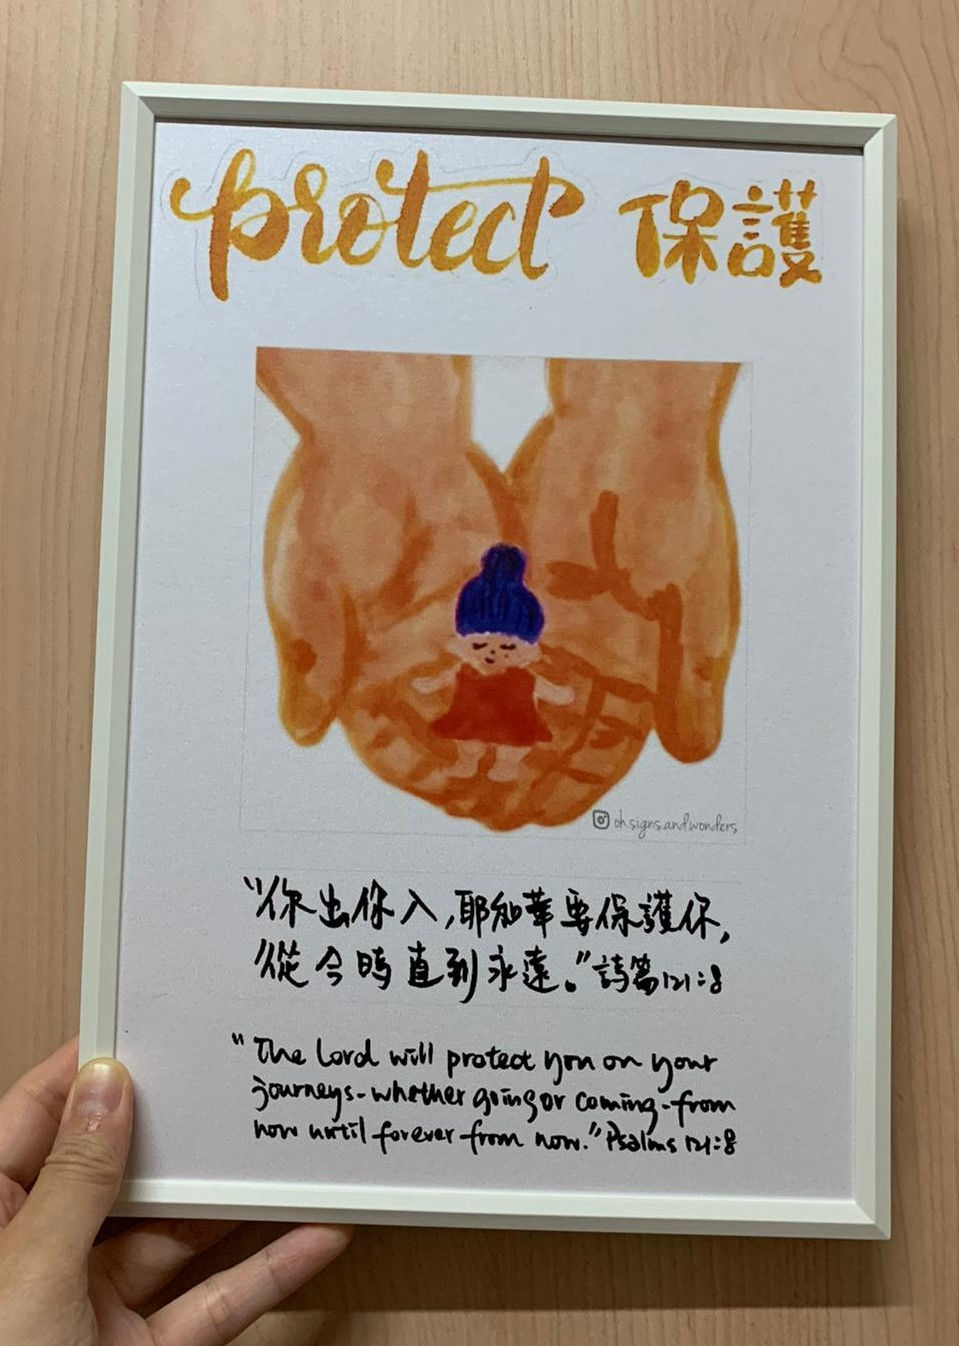 protect 保護
ohsignsandwonders
"你出你入,耶和華要保護你,
從今時直到永遠。"詩篇121:8
"The Lord will protect you on your
journeys-whether going or coming-from
now until forever from now." Psalms 121:8